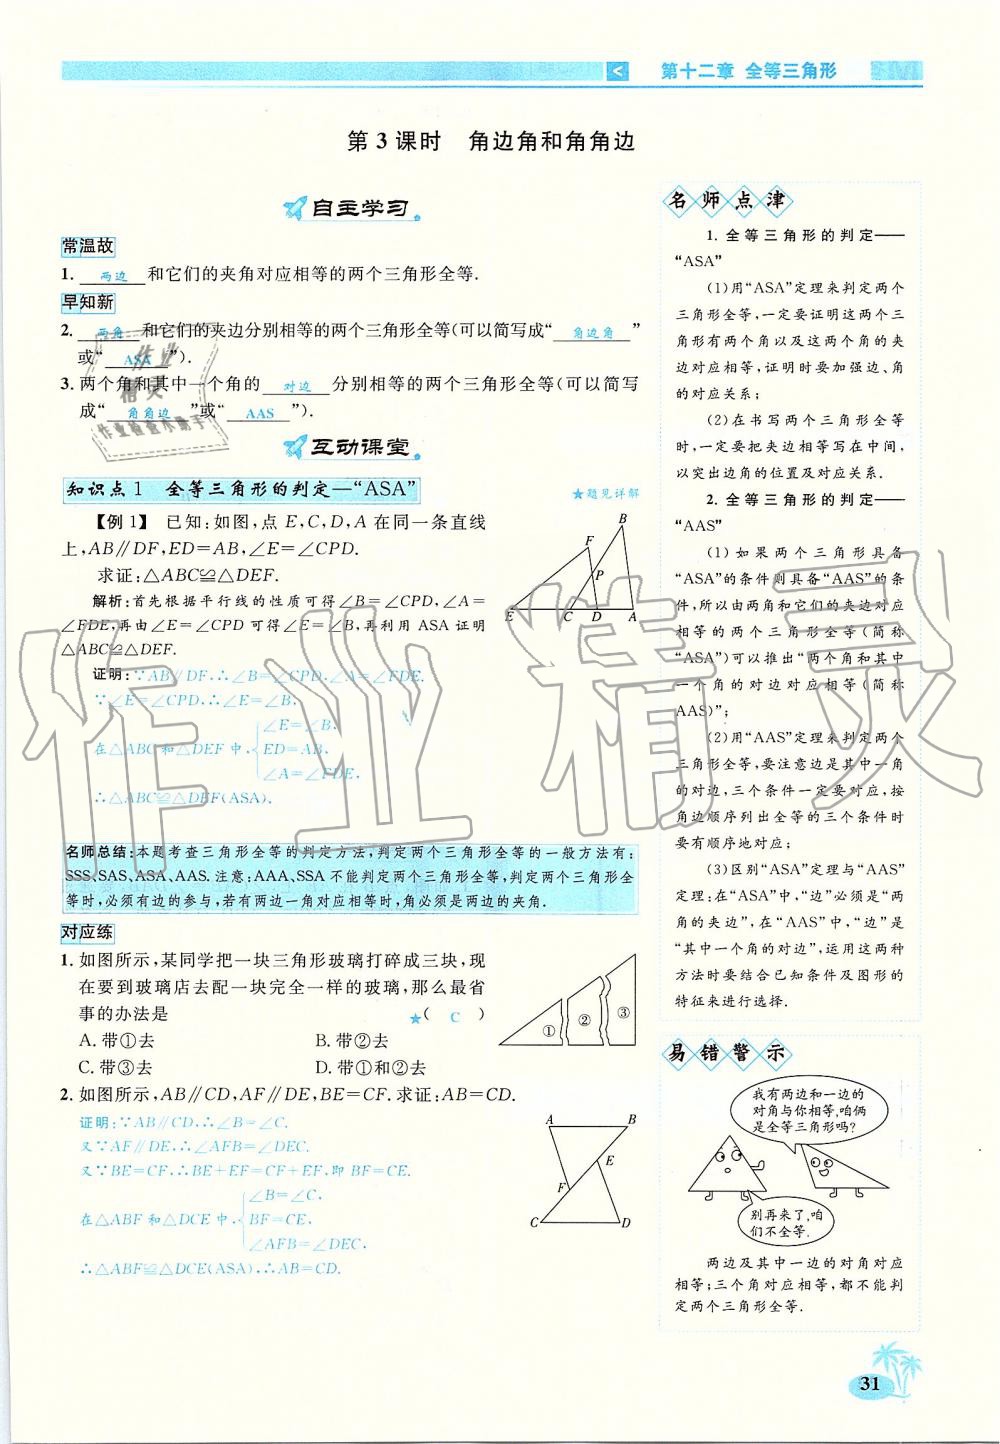 第十二章 全等三角形
第 3 课时 角边角和角角边
自主学习
常温故
1. 两边 和它们的夹角对应相等的两个三角形全等.
早知新
2. 两角 和它们的夹边分别相等的两个三角形全等(可以简写成“ 角边角 ”
或“ ASA ”).
3. 两个角和其中一个角的 对边 分别相等的两个三角形全等(可以简写
成“ 角角边 ”或“ AAS ”).
互动课堂
知识点 1 全等三角形的判定—“ASA”
★题见详解
【例 1】 已知:如图,点 E,C,D,A 在同一条直线
上,AB∥DF,ED=AB,∠E=∠CPD.
求证:△ABC≌△DEF.
解析:首先根据平行线的性质可得∠B=∠CPD,∠A=
∠FDE,再由∠E=∠CPD 可得∠E=∠B,再利用 ASA 证明
△ABC≌△DEF.
证明:∵AB∥DF,∴∠B=∠CPD,∠A=∠FDE.
∵∠E=∠CPD,∴∠E=∠B,
∠E=∠B,
在△ABC 和△DEF 中, ED=AB,
∠A=∠FDE,
∴△ABC≌△DEF(ASA).
B
F
P
E C D A
名师总结:本题考查三角形全等的判定方法,判定两个三角形全等的一般方法有:
SSS,SAS,ASA,AAS.注意:AAA,SSA 不能判定两个三角形全等,判定两个三角形全
等时,必须有边的参与,若有两边一角对应相等时,角必须是两边的夹角.
对应练
1. 如图所示,某同学把一块三角形玻璃打碎成三块,现
在要到玻璃店去配一块完全一样的玻璃,那么最省
事的办法是 ★( C )
A. 带①去 B. 带②去
C. 带③去 D. 带①和②去
① ② ③
2. 如图所示,AB∥CD,AF∥DE,BE=CF.求证:AB=CD.
证明:∵AB∥CD,∴∠B=∠C.
又∵AF∥DE,∴∠AFB=∠DEC.
又∵BE=CF,∴BE+EF=CF+EF,即 BF=CE.
∠B=∠C,
在△ABF 和△DCE 中, BF=CE,
∠AFB=∠DEC,
∴△ABF≌△DCE(ASA),∴AB=CD.
A B
E
F
C D
名师点津
1. 全等三角形的判定——
“ASA”
(1)用“ASA”定理来判定两个
三角形全等,一定要证明这两个三
角形有两个角以及这两个角的夹
边对应相等,证明时要加强边、角
的对应关系;
(2)在书写两个三角形全等
时,一定要把夹边相等写在中间,
以突出边角的位置及对应关系.
2. 全等三角形的判定——
“AAS”
(1)如果两个三角形具备
“ASA”的条件则具备“AAS”的条
件,所以由两角和它们的夹边对应
相等的两个三角形全等(简称
“ASA”)可以推出“两个角和其中
一个角的对边对应相等(简称
AAS)”;
(2)用“AAS”定理来判定两个
三角形全等,要注意边是其中一角
的对边,三个条件一定要对应,按
角边顺序列出全等的三个条件时
要有顺序地对应;
(3)区别“ASA”定理与“AAS”
定理:在“ASA”中,“边”必须是“两
角的夹边”,在“AAS”中,“边”是
“其中一个角的对边”,运用这两种
方法时要结合已知条件及图形的
特征来进行选择.
易错警示
我有两边和一边的
对角与你相等,咱俩
是全等三角形吗?
别再来了,咱
们不全等.
两边及其中一边的对角对应
相等;三个角对应相等,都不能判
定两个三角形全等.
31
作业精灵
作业
精灵
作业检查小助手